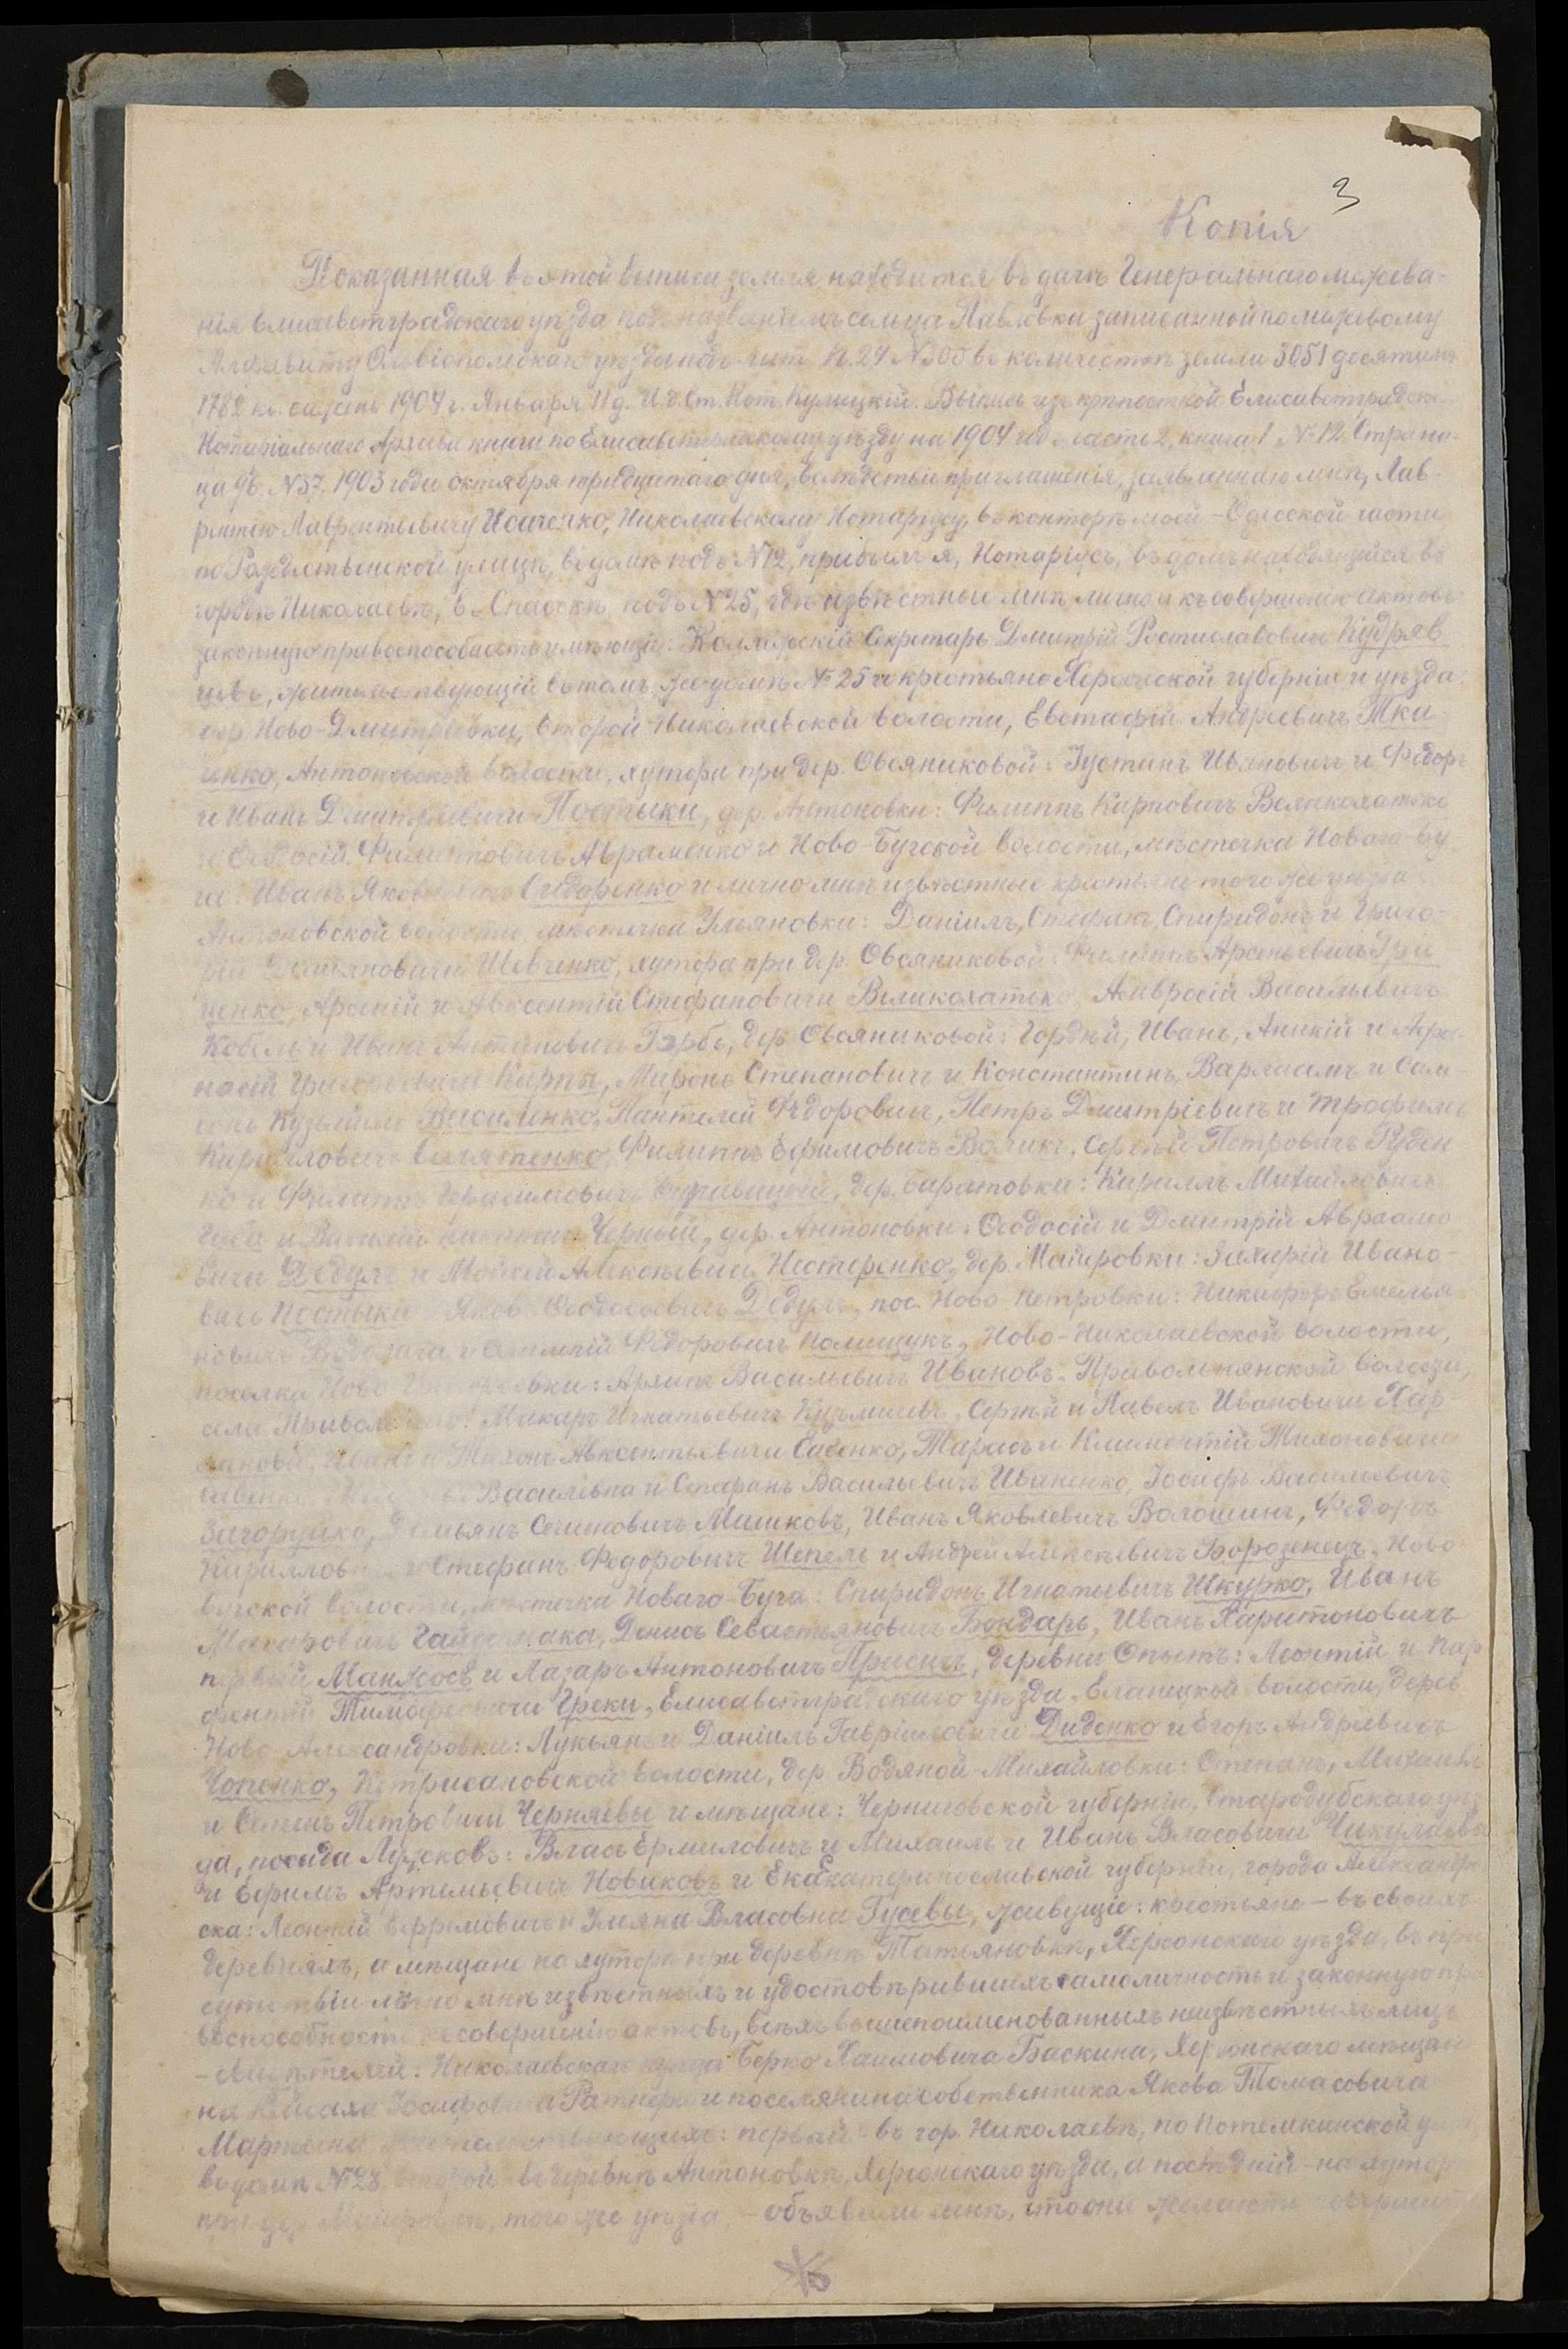 3
Копія
Показанная въ этой выписи земля находится въ дачѣ Генеральнаго межева-
нія Елисаветградскаго уѣзда подъ названіемъ сельца Павловки записанной по межевому
Алфавиту Ольвіопольскаго уѣзда подъ лит. П. 24 въ количествѣ земли 3051 десятинъ
1782 кв. сажень 1904 г. Января 11 д. И. д. Ст. Нот. Кулицкій. Выпись изъ крѣпостной Елисаветградск.
Нотаріальнаго Архива книги по Елисаветградскому уѣзду на 1904 год часть 2, книга 1 № 12 Страни-
ца № 37. 1903 года октября тридцатаго дня, вслѣдствіе приглашенія, заявленнаго мнѣ, Лав-
рентію Лаврентьевичу Исаченко, Николаевскому Нотаріусу, въ конторѣ моей - Одесской части
по Рождественской улицѣ, въ домѣ подъ № 12, прибылъ я, Нотаріусъ, въ домъ находящійся въ
городѣ Николаевѣ, въ Спасскѣ подъ № 25, гдѣ извѣстные мнѣ лично и къ совершенію актовъ
законную правоспособность имѣющіе: Коллежскій Секретарь Дмитрій Ростиславовичъ Кудряв
цевъ, жительствующій въ томъ же домѣ № 25 и крестьяне Херсонской губерніи и уѣзда:
дер. Ново-Дмитровки, второй Николаевской волости, Евстафій Андреевичъ Тка
ченко, Антоновской волости, хутора при дер. Овсяниковой: Іустинъ Ивановичъ и Федоръ
и Иванъ Дмитріевичи Постыки, дер. Антоновки: Филиппъ Карповичъ Великохатько
и Феодосій Филипповичъ Авраменко и Ново-Бугской волости, мѣстечка Новаго-Бу-
га: Иванъ Яковлевичъ Сидоренко и лично мнѣ извѣстные крестьяне того же уѣзда
Антоновской волости мѣстечка Ульяновки: Даніилъ, Стефанъ, Спиридонъ и Григо-
рій Демьяновичи Шевченко, хутора при дер. Овсяниковой Филиппъ Арсеньевичъ Гри
ценко, Арсеній и Авксентій Стефановичи Великохатько, Амвросій Васильевичъ
Кобель и Иванъ Антиповичъ Гербъ, дер. Овсяниковой: Гордѣй, Иванъ, Аникій и
Григорьевичи Карпы, Миронъ Степановичъ и Константинъ, Варлаамъ и Сам-
сонъ Кузьмичи Василенко, Пантелей Федоровичъ, Петръ Дмитріевичъ и Трофимъ
Кирилловичъ Филиппъ Ефимовичъ Волик, Сергѣй Петровичъ Руден
ко и Филиппъ Герасимовичъ дер. Баратовки: Кириллъ Михайловичъ
Губа и Василій Черный, дер. Антоновки: Феодосій и Дмитрій Авраамо
вичи Дедулъ и Моисей Алексѣевичъ Нестеренко, дер. Маіеровки: Захарій Ивано-
вичъ Постыки Яковъ Феодосьевичъ Дедулъ, пос. Ново-Петровки: Никифоръ Емелья
новичъ Водолага и Федоровичъ Полищукъ, Ново-Николаевской волости,
поселка Ново-Григорьевки: Архипъ Васильевичъ Ивановъ, Привольнянской волости,
села Привольнаго: Макаръ Игнатьевичъ Кузьмичевъ, Сергѣй и Павелъ Ивановичи Хар
Тихонъ Авксентьевичи Савенко, Тарасъ и Климентій Тихоновичи
Савенко, Васильевна и Стефанъ Васильевичъ Иваненко, Іосифъ Васильевичъ
Загоруйко, Демьянъ Семеновичъ Машковъ, Иванъ Яковлевичъ Волошинъ, Федоръ
Кирилловичъ и Стефанъ Федоровичъ Шепель и Андрей Алексѣевичъ Борозенецъ, Ново-
Бугской волости, мѣстечка Новаго-Буга: Спиридонъ Игнатьевичъ Шкурко, Иванъ
Макаровичъ Гайдамака, Денисъ Севастьяновичъ Бондарь, Иванъ Харитоновичъ
первый Манжосъ и Лазарь Антоновичъ деревни Опытъ: Леонтій и Пар
фентій Тимофеевичи Греки, Елисаветградскаго уѣзда, Еланецкой волости, дерев
Ново-Александровки: Лукьянъ и Даніилъ Гавриловичи Диденко и Егоръ Андреевичъ
Чопенко, волости, дер. Водяной-Михайловки: Степанъ, Михаилъ
и Семенъ Петровичи Черняевы и мѣщане: Черниговской губерніи, Стародубскаго уѣз
да, посада Лужковъ: Власъ Ермиловичъ и Михаилъ и Иванъ Власовичи Чикулаевы
и Ефимъ Артемьевичъ Новиковъ и Екатеринославской губерніи, города Александров
ска: Леонтій Ефремовичъ и Ульяна Власовна Гусевы, живущіе: крестьяне - въ своихъ
деревняхъ, а мѣщане на хуторѣ при деревнѣ Татьяновкѣ, Херсонскаго уѣзда, въ при
сутствіи лично мнѣ извѣстныхъ и удостовѣрившихъ самоличность и законную пра
воспособность къ совершенію актовъ, всѣхъ вышепоименованныхъ неизвѣстныхъ лицъ
- свидѣтелей: Николаевскаго купца Берко Хаимовича Баскина, Херсонскаго мѣщани
на Іосифовича Ратнера и поселянина собственника Якова Томасовича
Мартына жительствующихъ: первый - въ гор. Николаевѣ, по Потемкинской ул
въ домѣ № 28, второй - въ деревнѣ Антоновкѣ, Херсонскаго уѣзда, а послѣдній - на хуторѣ
при дер. Маіеровкѣ, того же уѣзда, - объявили мнѣ, что они желаютъ совершить